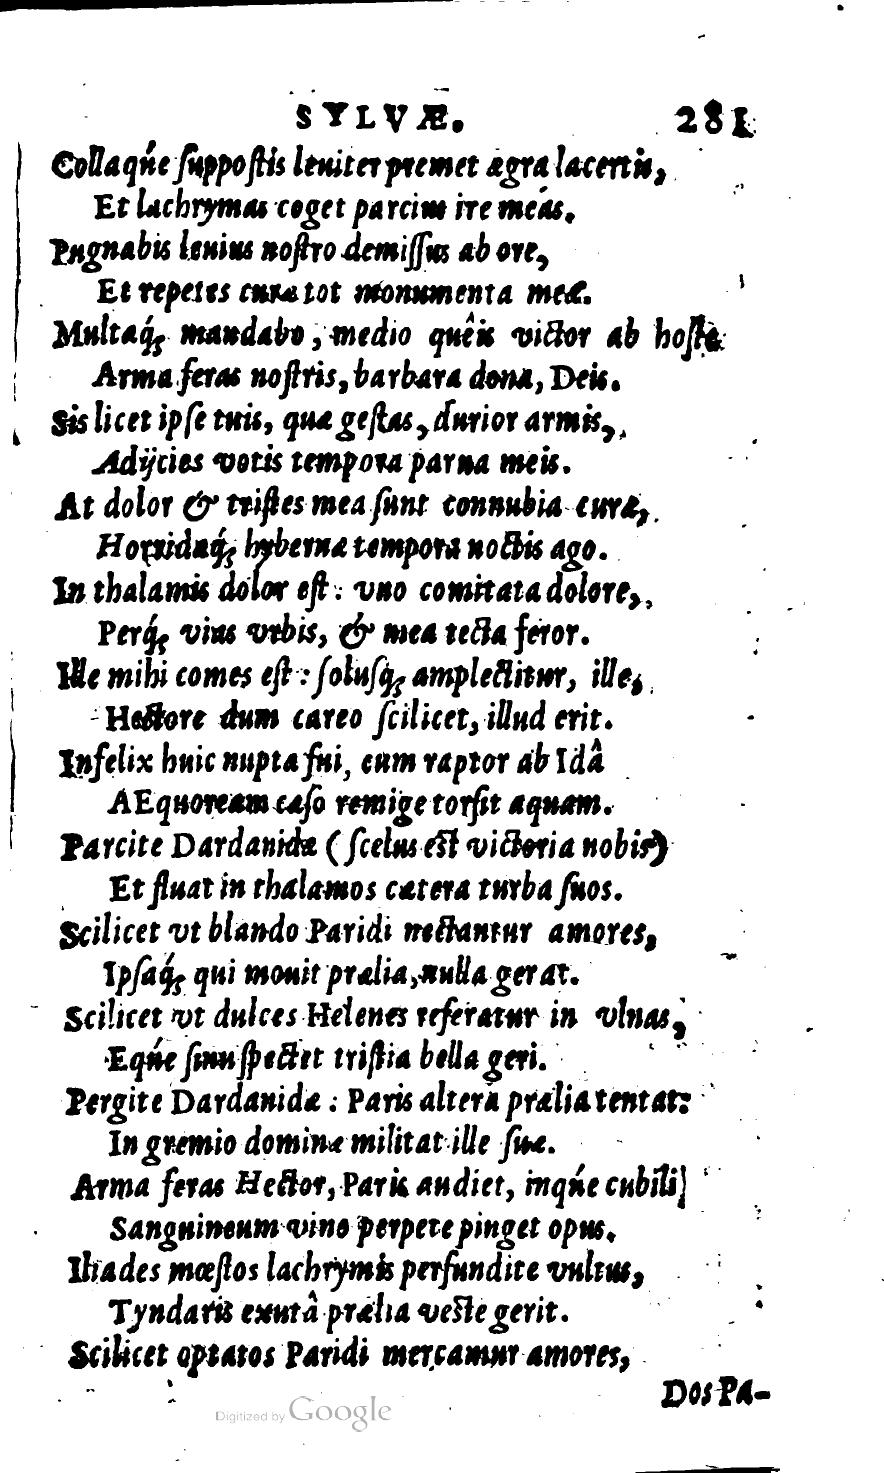 SYLVÆ. 281
Collaqńe ſuppoſtis leniter premet ægra lacertis,
Et lachrymas coget parcius ire meás.
Pugnabis lenius noſtro demiſſus ab ore,
Et repetes curæ tot monumenta meæ.
Multaq́; mandabo, medio quêis victor ab hoſte
Arma feras noſtris, barbara dona, Deis.
Sis licet ipſe tuis, quæ geſtas, durior armis,
Adijcies votis tempora parua meis.
At dolor & triſtes mea ſunt connubia curæ,
Horridaq́; hyberna tempora noctis ago.
In thalamis dolor eſt: vno comitata dolore,
Perq́; vias vrbis, & mea tecta feror.
Ille mihi comes eſt: ſoluſq́; amplectitur, ille,
Hectore dum careo ſcilicet, illud erit.
Infelix huic nupta fui, cum raptor ab Idâ
AEquoream cæſo remige torſit aquam.
Parcite Dardanidæ (ſcelus eſt victoria nobis)
Et fluat in thalamos cætera turba ſuos.
Scilicet vt blando Paridi nectantur amores,
Ipſaq́; qui mouit prælia, nulla gerat.
Scilicet vt dulces Helenes referatur in vlnas,
Eqńe ſinu ſpectet triſtia bella geri.
Pergite Dardanidæ: Paris altera prælia tentat:
In gremio dominæ militat ille ſuæ.
Arma feras Hector, Paris audiet, inqńe cubili
Sanguineum vino perpete pinget opus.
Iliades mœſtos lachrymis perfundite vultus,
Tyndaris exutâ prælia veſte gerit.
Scilicet optatos Paridi mercamur amores,
Dos Pa-
Digitized by Google